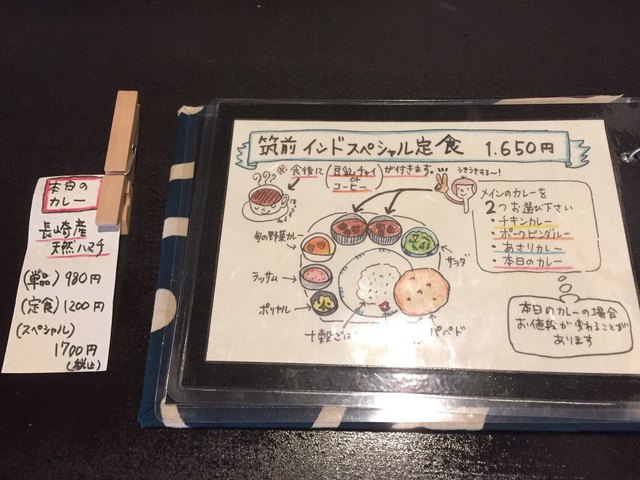 本日の
カレー
長崎産
天然ハマチ
(単品) 980円
(定食) 1200円
(スペシャル)
1700円
(税込)
筑前 インドスペシャル定食 1.650円
※食後に(豆乳チャイ or コーヒー)が付きます。
うきうきする〜!
メインのカレーを
2つお選び下さい
・チキンカレー
・ポークビンダルー
・あさりカレー
・本日のカレー
旬の野菜カレー
サラダ
ラッサム
ポリヤル
十穀ごはん
パパド
本日のカレーの場合
お値段が変わることが
あります